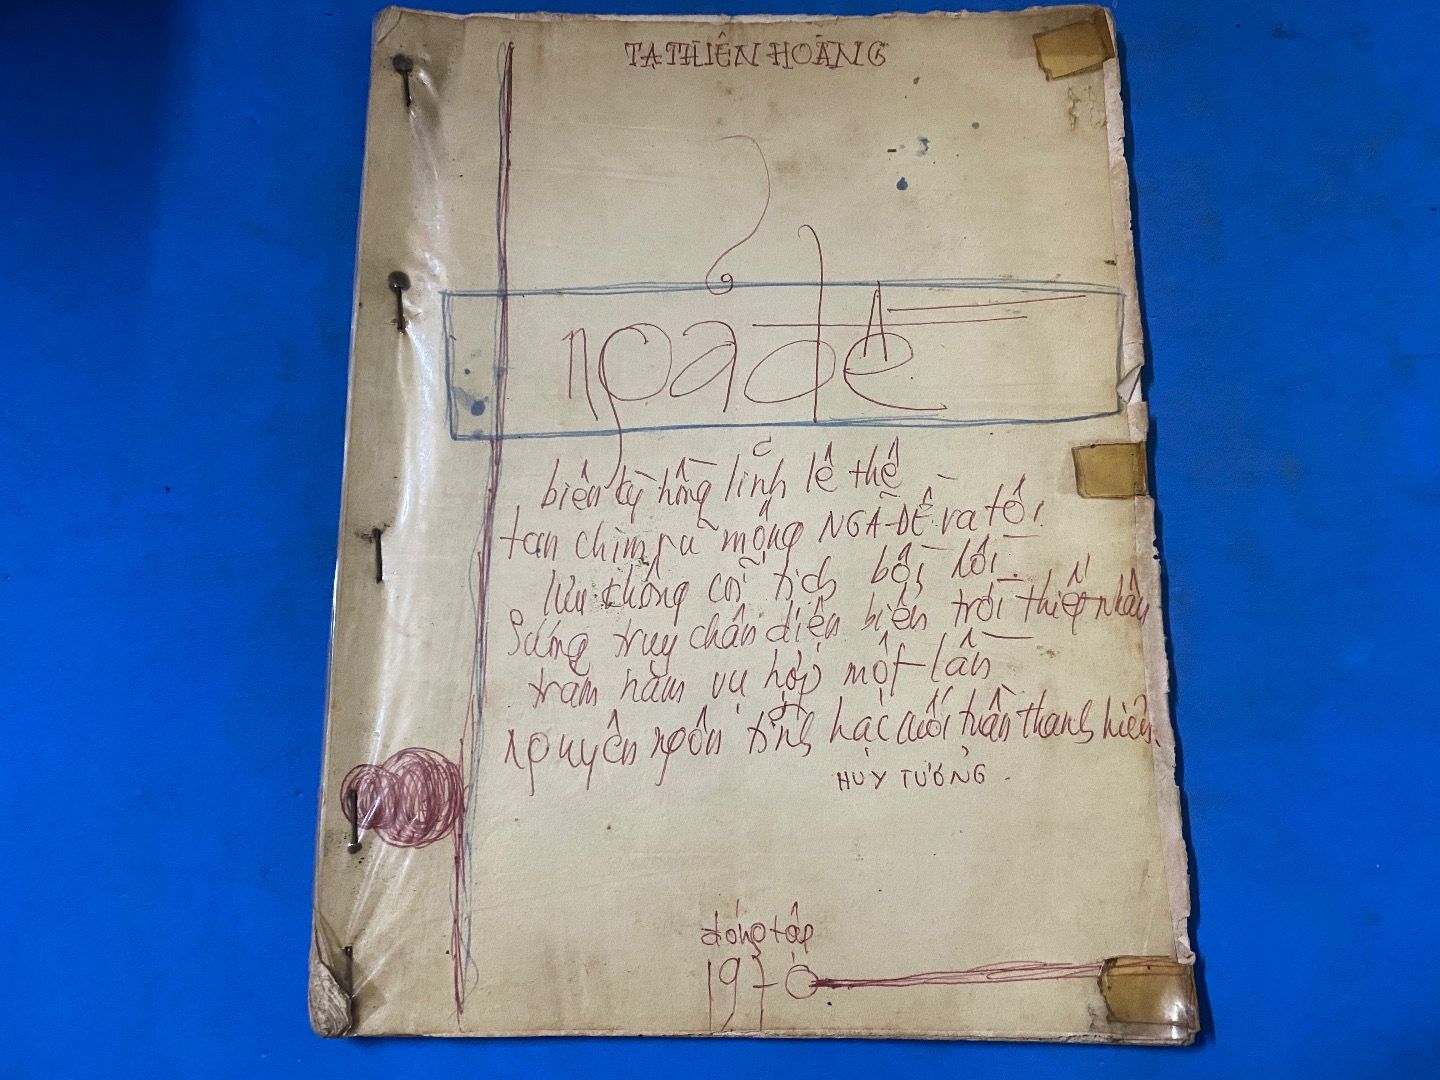 TẠ THIÊN HOÀNG
ngã đề
biển kỳ hồng lĩnh lê thề
tan chim rũ mộng NGÃ-ĐỀ và tôi.
lưu thông cõi tịch bồi hồi
Sương truy chân diện biến trời thiếp nhân
trăm năm vụ hợp một lần
nguyên ngôn tịnh hạc cuối tuần thanh hiên.
HUY TƯỞNG.
đóng tập
1970